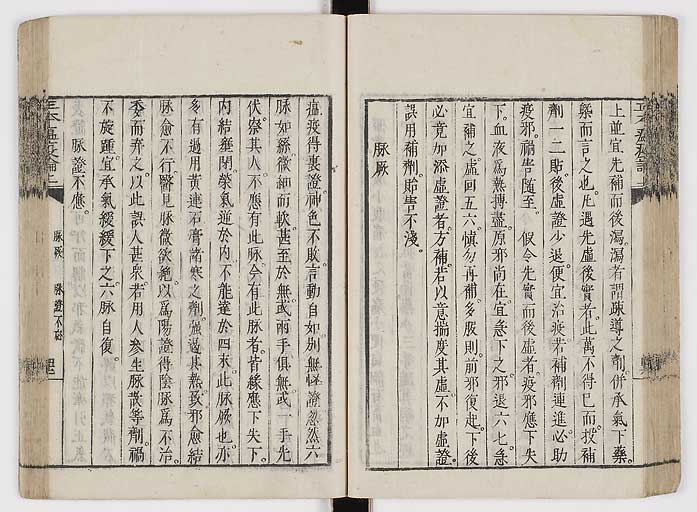 上並宜先補而後瀉。瀉者謂疎導之劑。併承氣下藥。
槩而言之也。凡遇先虛後實者。此萬不得已而投補
劑一二貼。後虛證少退。便宜治疫。若補劑連進。必助
疫邪。禍害隨至。 假令先實而後虛者。疫邪應下失
下。血液爲熱搏盡。原邪尚在。宜急下之。邪退六七。急
宜補之。虛回五六。愼勿再補。多服則前邪復起。下後
必竟加添虛證者。方補。若以意揣度其虛。不如虛證。
誤用補劑。貽害不淺。
脉厥
溫疫得裏證。神色不敗。言動自如。別無怪證。忽然六
脉如絲。微細而軟。甚至於無。或兩手俱無。或一手先
伏。察其人。不應有此脉。今有此脉者。皆緣應下失下。
內結壅閉。榮氣逆於內。不能達於四末。此脉厥也。亦
多有過用黃連石膏諸寒之劑。強遏其熱。致邪愈結。
脉愈不行。醫見脉微欲絕。以爲陽證得陰脉爲不治。
委而弃之。以此誤人甚衆。若用人參生脉散等劑。禍
不旋踵。宜承氣緩緩下之。六脉自復。
脉證不應。
脉厥 脉證不應